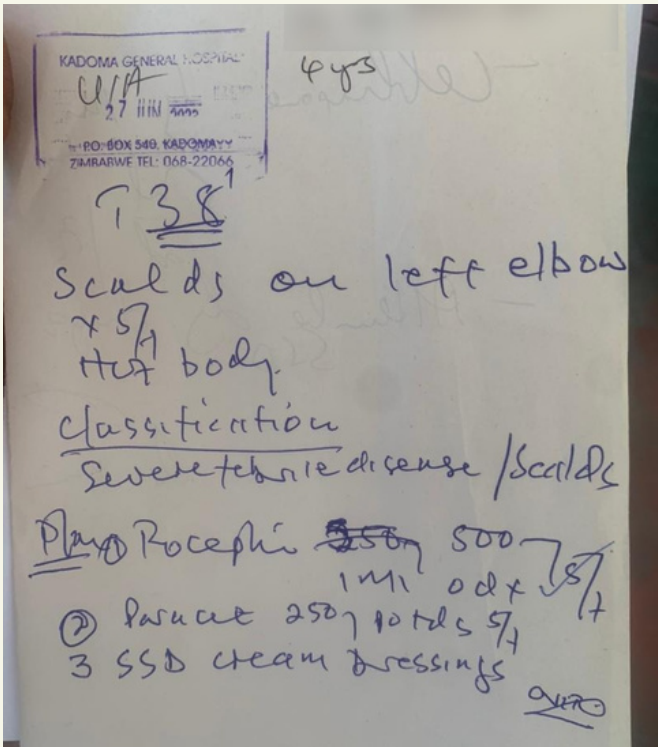 KADOMA GENERAL HOSPITAL
27 JUN
P.O. BOX 540, KADOMA
ZIMBABWE TEL: 068-22066
4 yrs
T 38¹
Scalds on left elbow
x 5/7
Hot body
Classification
Severe febrile disease / Scalds
Plan ① Rocephin 500
IMI od x 5/7
② Paracet 250 po tds 5/7
3 SSD cream Dressings